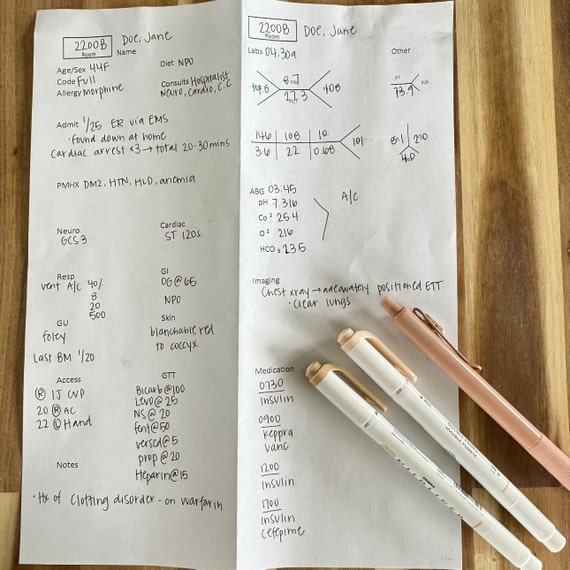 2200B
Room
Doe, Jane
Name
Age/Sex 44F
Diet NPO
Code Full
Consults Hospitalist
Allergy Morphine
Neuro, Cardio, C.C
Admit 1/25 ER via EMS
• Found down at home
Cardiac arrest x3 → total 20-30mins
PMHX DM2, HTN, HLD, anemia
Neuro
GCS 3
Cardiac
ST 120s
Resp
vent A/C 40%
8
20
500
GI
OG @ 65
NPO
GU
foley
Last BM 1/20
Skin
blanchable red
to coccyx
Access
(R) IJ CVP
20 (R) AC
22 (L) Hand
GTT
Bicarb @ 100
Levo @ 25
NS @ 20
fent @ 50
versed @ 5
prop @ 20
Heparin @ 15
Notes
• Hx of Clotting disorder - on warfarin
2200B
Room
Doe, Jane
Labs 04:30a
Other
27.3
408
73.9
INR
146 108 10
101
3.6 22 0.68
ABG 03:45
pH 7.316
CO² 25.4
O² 216
HCO3 23.5
A/C
Imaging
Chest xray → adequately positioned ETT
• Clear lungs
Medication
0730
insulin
0900
Keppra
vanc
1200
insulin
1700
insulin
cefepime